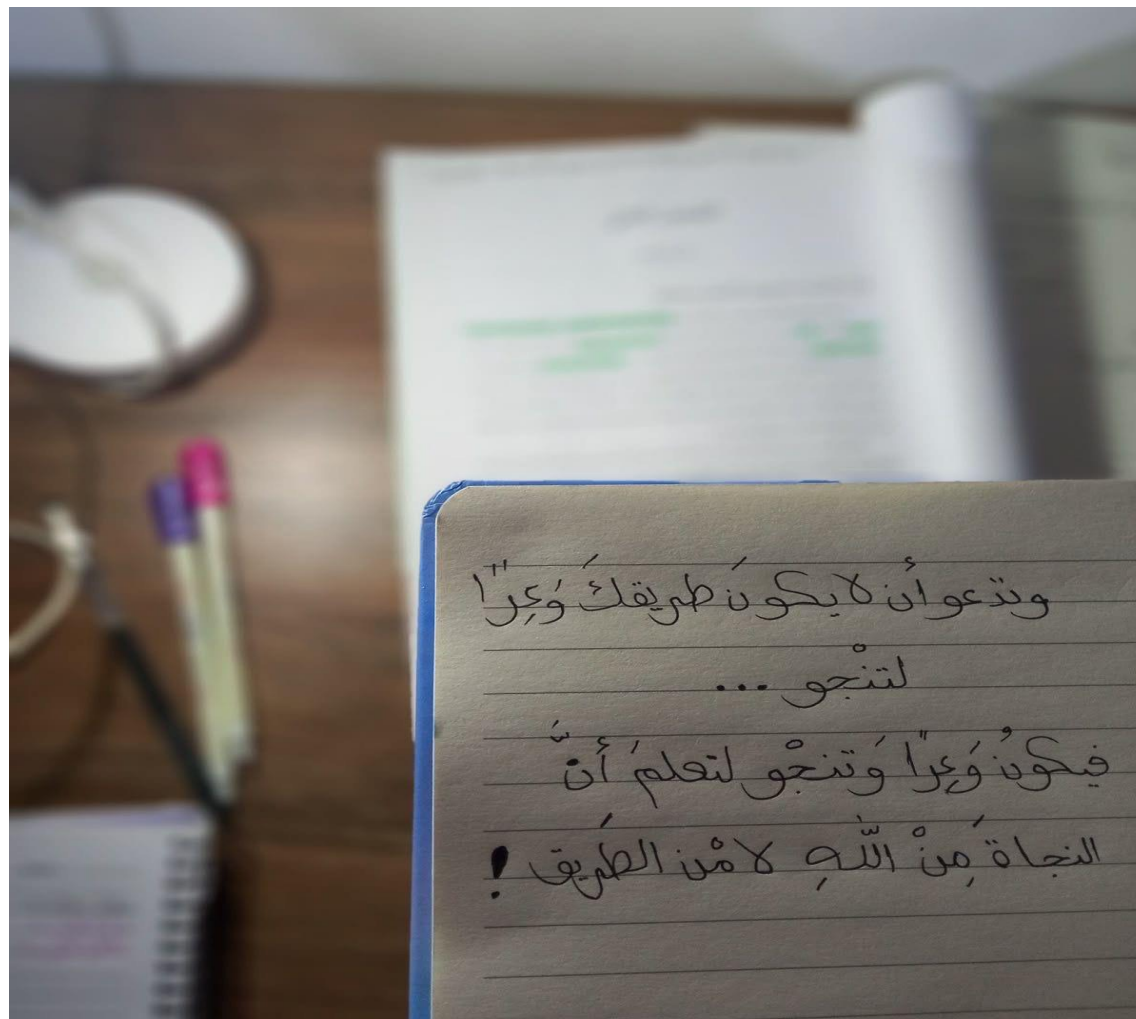 وتدعو أن لا يكونَ طريقكَ وَعِرًا
لتنْجو ...
فيكونُ وَعِرًا وَتنجْو لتعلمَ أنَّ
النجاةَ مِنْ اللّهِ لا مْن الطَريق !